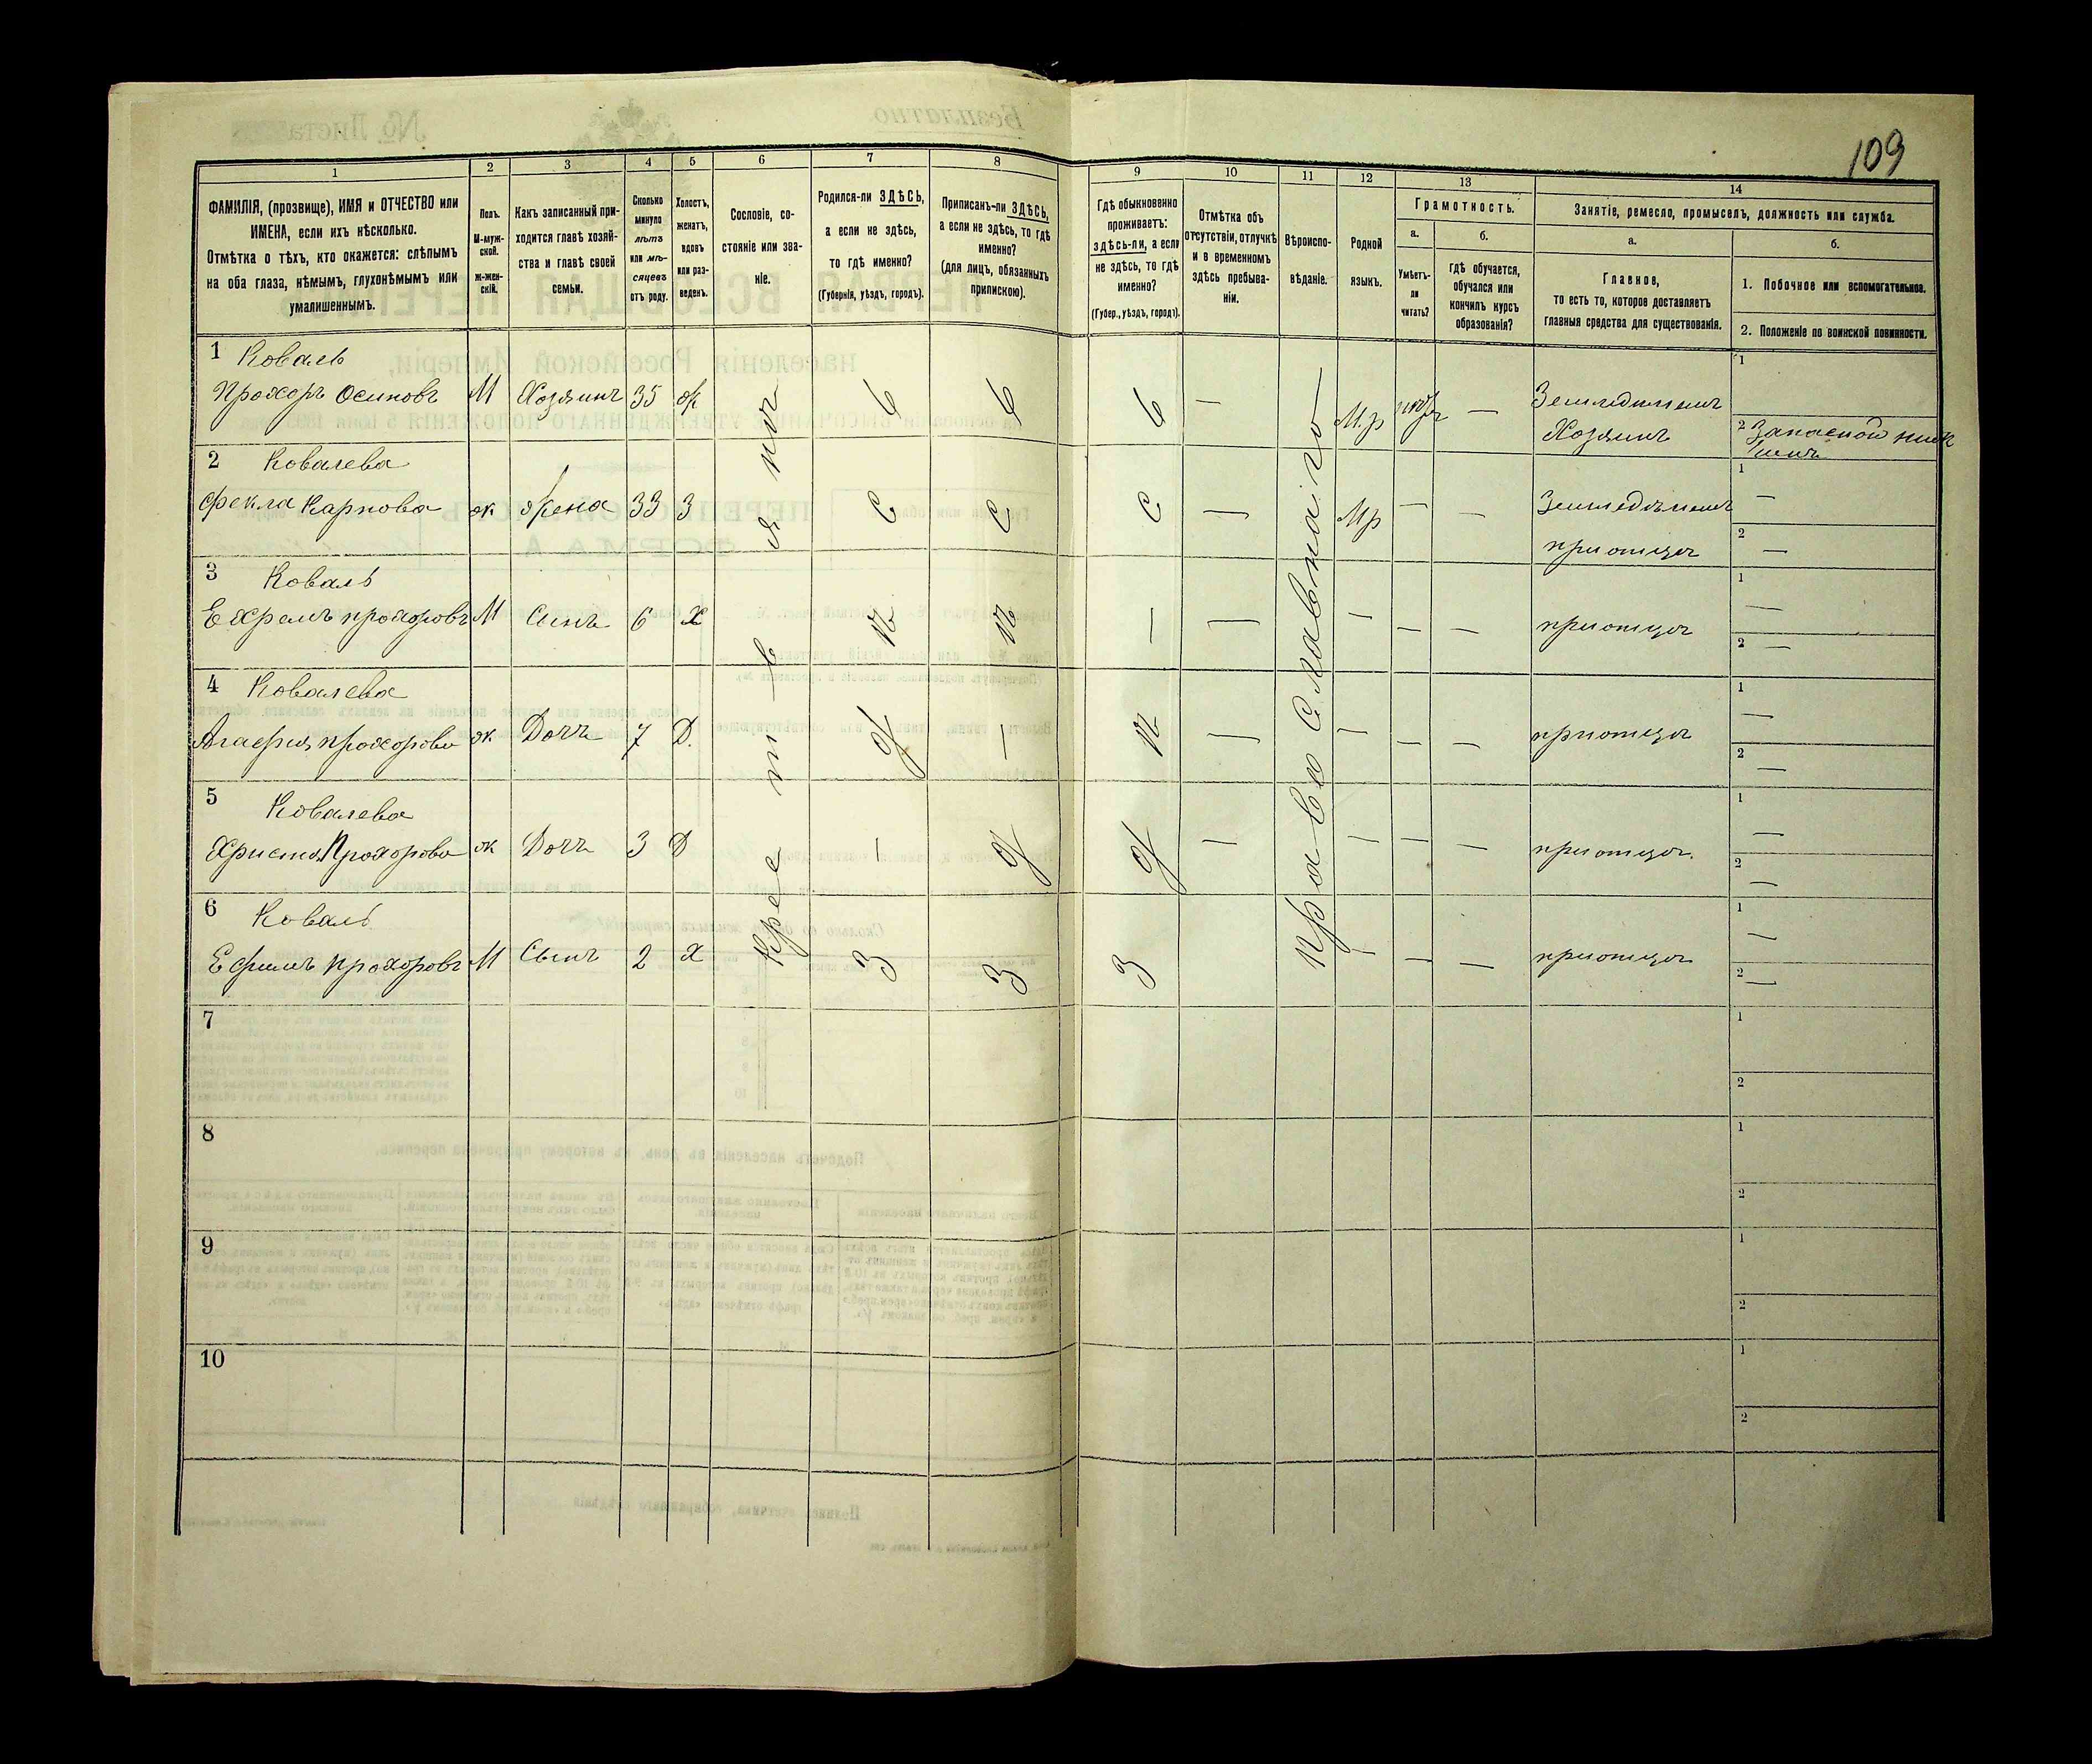 109
1 2 3 4 5 6 7 8 9 10 11 12 13 14
ФАМИЛІЯ, (прозвище), ИМЯ и ОТЧЕСТВО или
ИМЕНА, если ихъ нѣсколько.
Отмѣтка о тѣхъ, кто окажется: слѣпымъ
на оба глаза, нѣмымъ, глухонѣмымъ или
умалишеннымъ.
Полъ.
М-муж-
ской.
ж-жен-
скій.
Какъ записанный при-
ходится главѣ хозяй-
ства и главѣ своей
семьи.
Сколько
минуло
лѣтъ
или мѣ-
сяцевъ
отъ роду.
Холостъ,
женатъ,
вдовъ
или раз-
веденъ.
Сословіе, со-
стояніе или зва-
ніе.
Родился-ли ЗДѢСЬ,
а если не здѣсь,
то гдѣ именно?
(Губернія, уѣздъ, городъ).
Приписанъ-ли ЗДѢСЬ,
а если не здѣсь, то гдѣ
именно?
(для лицъ, обязанныхъ
припискою).
Гдѣ обыкновенно
проживаетъ:
здѣсь-ли, а если
не здѣсь, то гдѣ
именно?
(Губер., уѣздъ, городъ).
Отмѣтка объ
отсутствіи, отлучкѣ
и о временномъ
здѣсь пребыва-
ніи.
Вѣроиспо-
вѣданіе.
Родной
языкъ.
Грамотность.
а.
Умѣетъ-
ли
читать?
б.
гдѣ обучается,
обучался или
кончилъ курсъ
образованія?
Занятіе, ремесло, промыселъ, должность или служба.
а.
Главное,
то есть то, которое доставляетъ
главныя средства для существованія.
б.
1. Побочное или вспомогательное.
2. Положеніе по воинской повинности.
1 Коваль 1
Прохоръ Осиповъ М Хозяинъ 35 ж — М.р — Земледелиемъ
Хозяинъ 2 Запасной
2 Ковалева 1
Фекла Карпова ж жена 33 З — Мр — — Земледѣлиемъ —
приотцъ 2 —
3 Коваль 1
Ехремъ Прохоровъ М Синъ 6 Х — — — — приотцъ —
2 —
4 Ковалева 1
Агафия Прохорова ж Дочъ 7 Д. — — — — приотцъ —
2 —
5 Ковалева 1
Христя Прохорова ж Дочъ 3 Д — — — — приотцъ. —
2 —
6 Коваль 1
Ефимъ Прохоровъ М Сынъ 2 Х — — — приотцъ —
2 —
Здѣсь
Здѣсь
Здѣсь
Православнаго
7 1
2
8 1
2
9 1
2
10 1
2